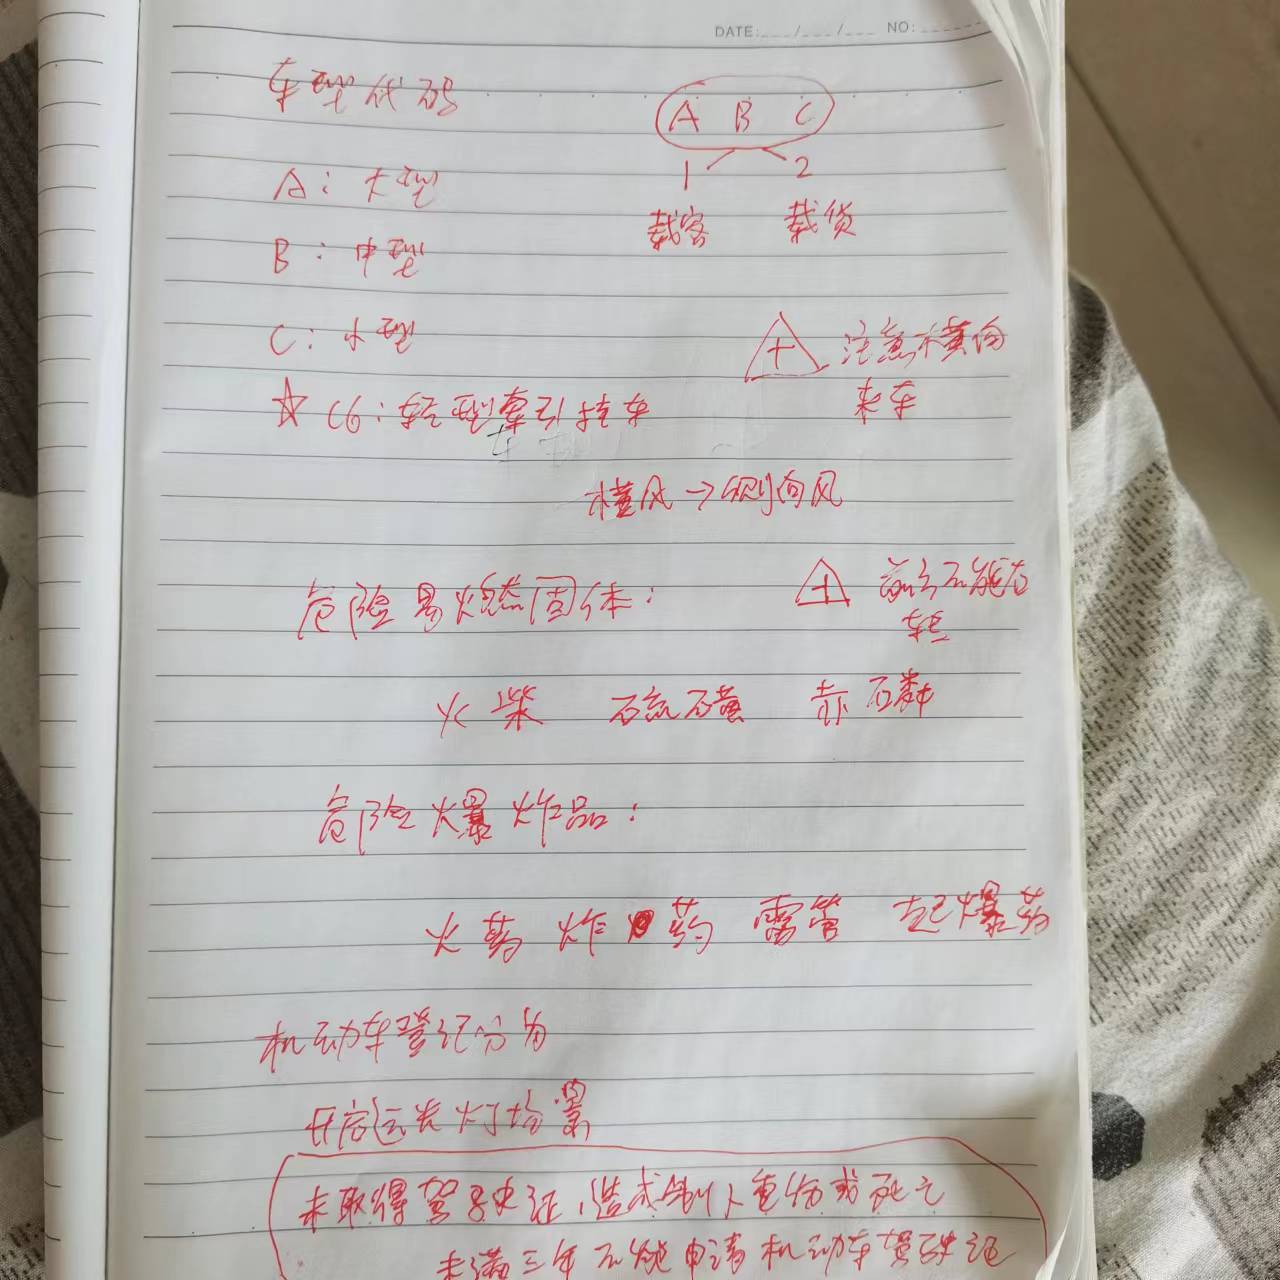 DATE:___/___/___ NO:______
车型代码
A B C
1 2
A: 大型
载客 载货
B: 中型
C: 小型
+ 注意横向
来车
☆ C6: 轻型牵引挂车
横风→侧向风
危险易燃固体:
+ 前方不能右
转
火柴 硫磺 赤磷
危险爆炸品:
火药 炸药 雷管 起爆药
机动车登记分为
开启远光灯场景
未取得驾驶证,造成重伤或死亡
未满三年不能申请机动车驾驶证